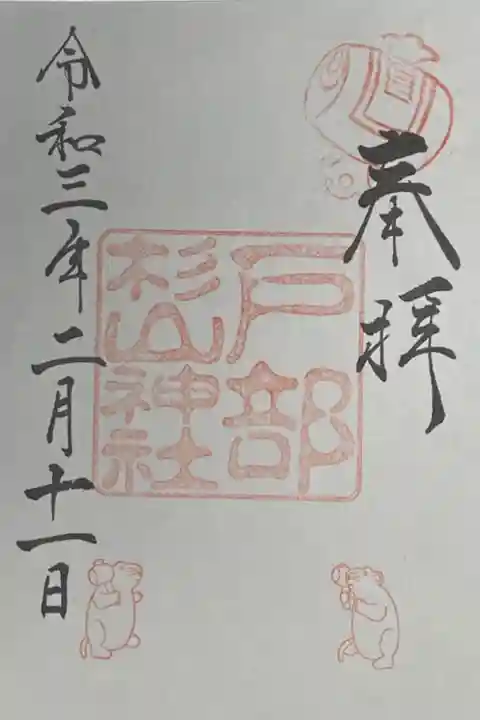 奉拝
戸部
杉山神社
令和三年二月十一日